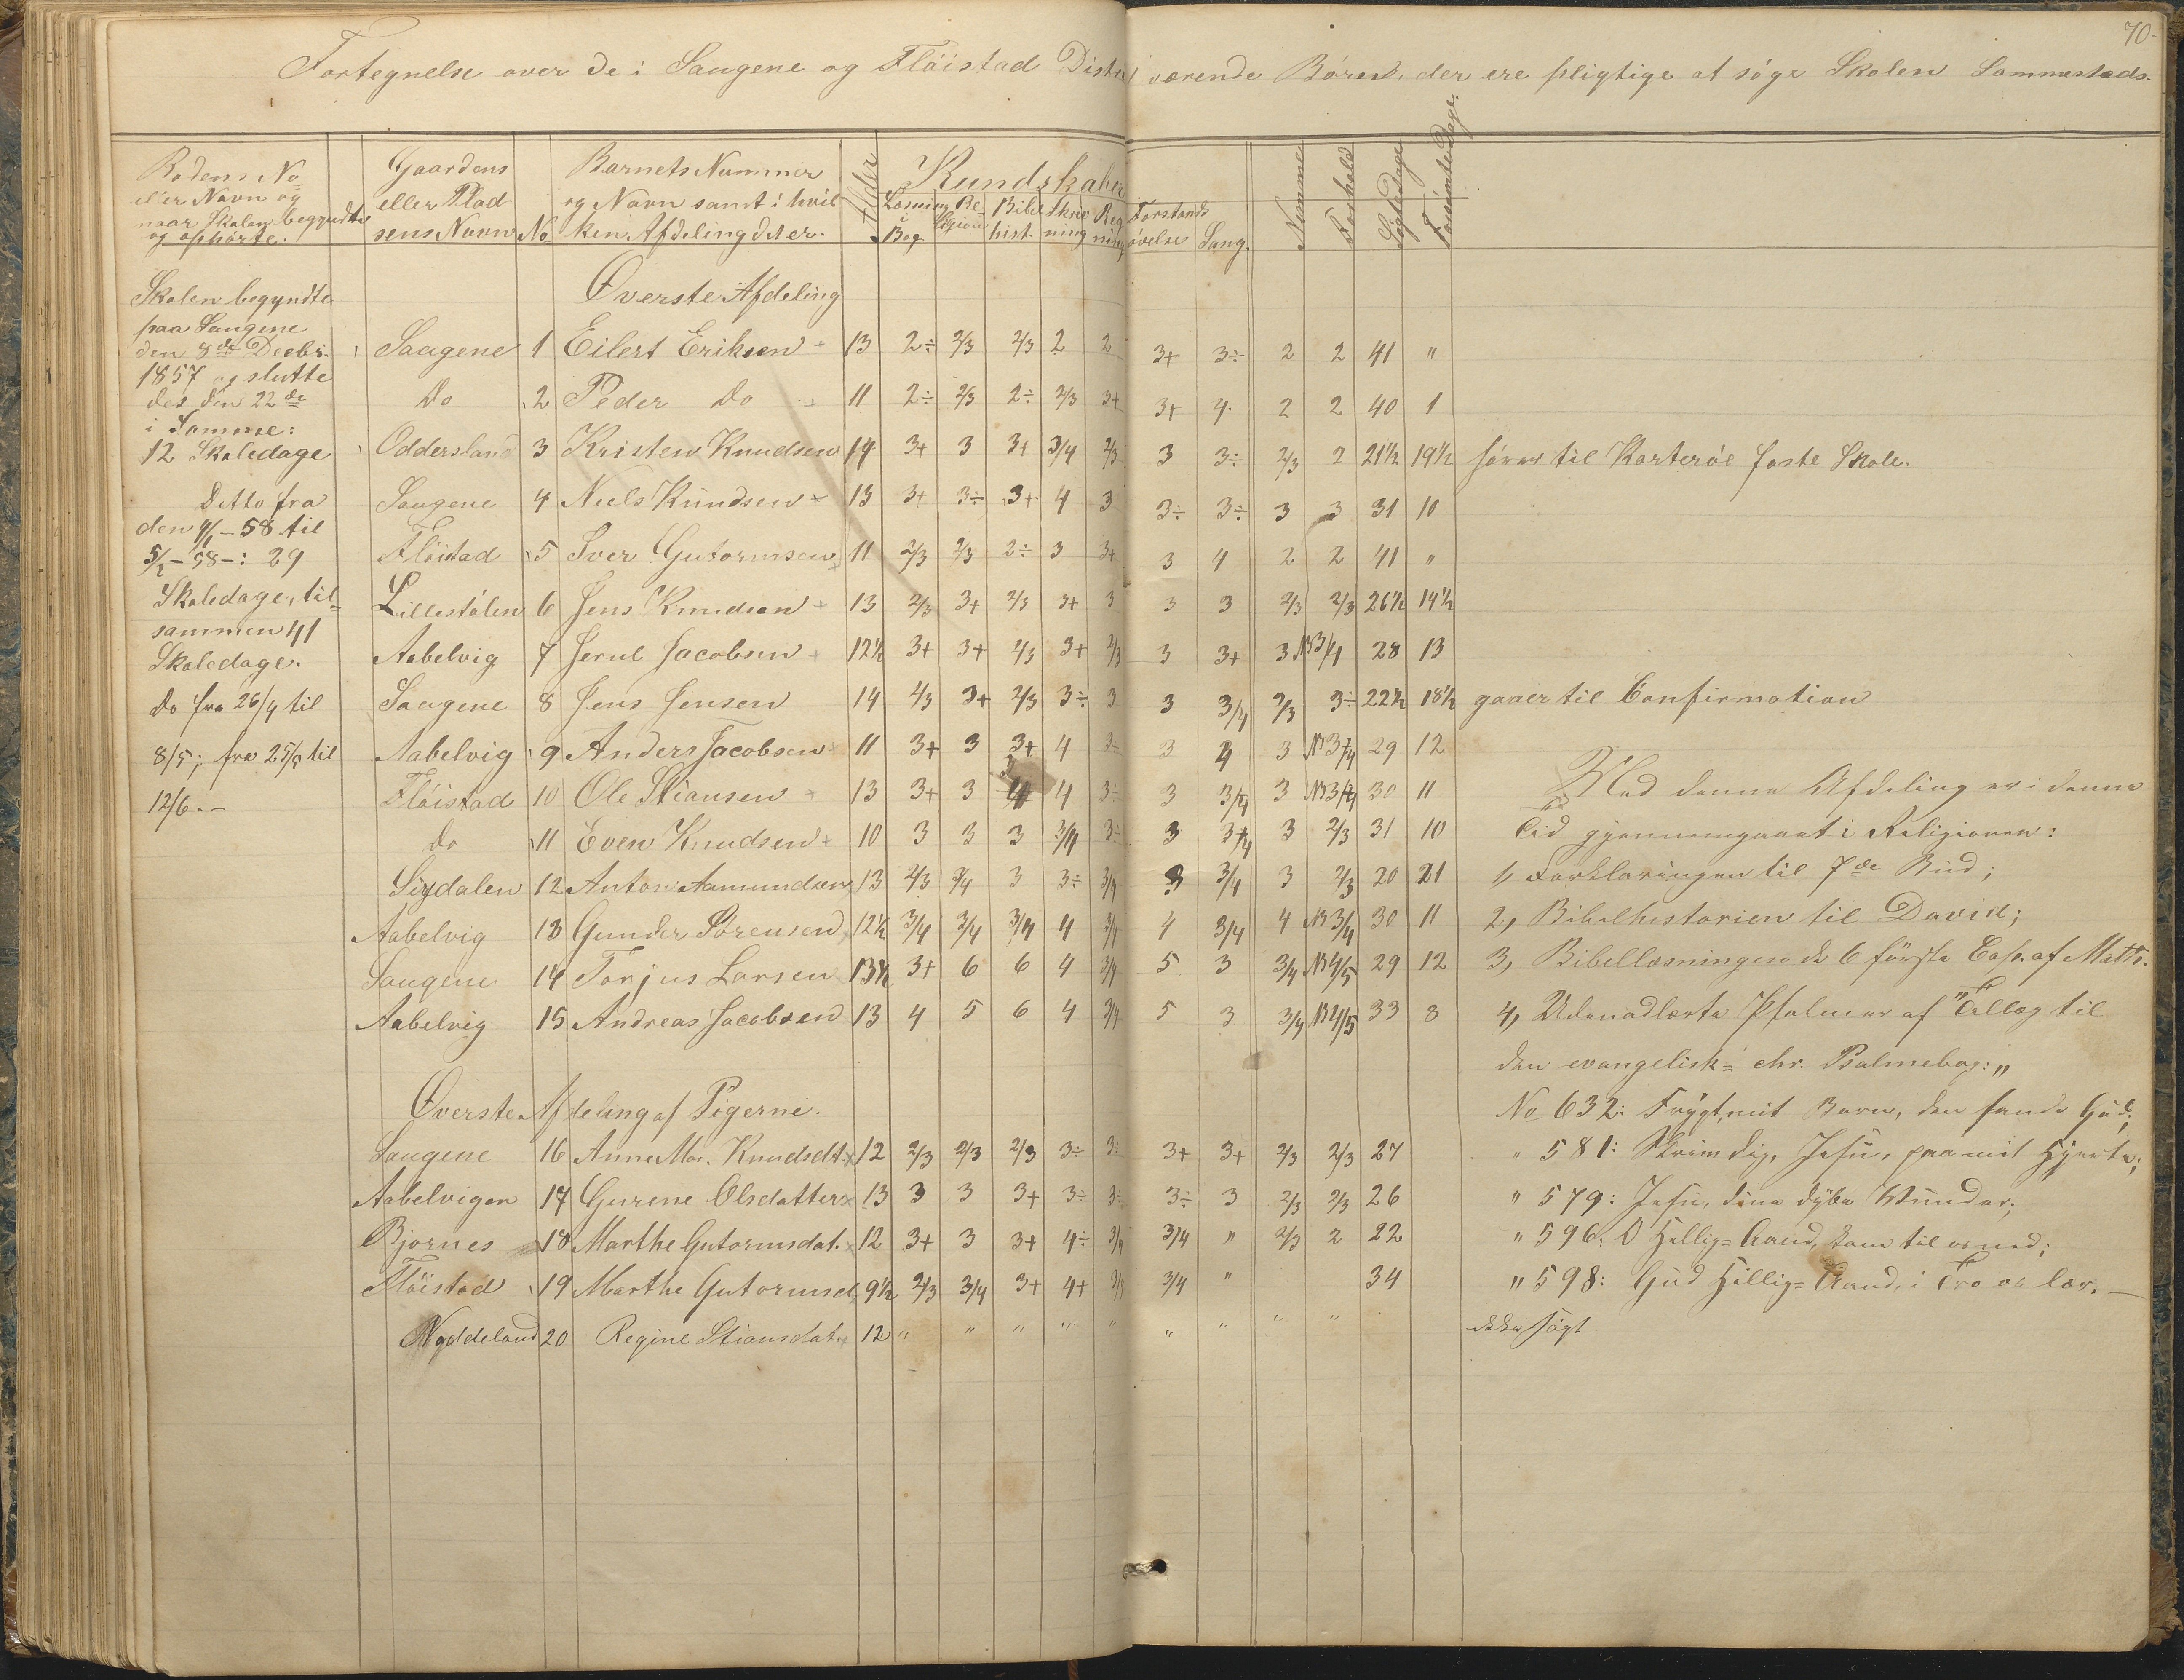 70.
Fortegnelse over de i Saugene og Flöistad Distr værende Börn, der ere pligtige at söge Skolen Sammesteds.
Rodens No eller Navn og naar Skolen begyndte og ophörte.
Gaardens eller Pladsens Navn
No
Barnets Nummer og Navn samt i hvilken Afdeling det er.
Alder
Kundskaber
Læsning i Bog
Religion
Bibelhist.
Skrivning
Regning
Forstandsövelse
Sang.
Nemme
Forhold
Sögte Dage
Forsömte Dage.
Skolen begyndte
paa Saugene
den 8de Decbr.
1857 og slutte
des den 22de
i Samme:
12 Skoledage
Ditto fra
den 4/1-58 til
5/2-58-: 29
Skoledage, til=
sammen 41
Skoledage.
Do fra 26/4 til
8/5; fra 25/5 til
12/6.-
Överste Afdeling
Saugene 1 Eilert Eriksen 13 2÷ 2/3 2/3 2 2 3+ 3÷ 2 2 41 "
Do 2 Peder Do 11 2÷ 2/3 2÷ 2/3 3+ 3+ 4 2 2 40 1
Oddersland 3 Kristen Knudsen 14 3+ 3 3+ 3/4 2/3 3 3÷ 2/3 2 21½ 19½ hörer til Korteröe faste Skole.
Saugene 4 Niels Knudsen 13 3+ 3÷ 3+ 4 3 3÷ 3÷ 3 3 31 10
Flöistad 5 Iver Gutormsen 11 2/3 2/3 2÷ 3 3+ 3 4 2 2 41 "
Lillestölen 6 Jens Knudsen 13 2/3 3+ 2/3 3+ 3 3 3 2/3 2/3 26½ 14½
Aabelvig 7 Jerul Jacobsen 12½ 3+ 3+ 2/3 3+ 2/3 3 3+ 3 NB 3/4 28 13
Saugene 8 Jens Jensen 14 2/3 3+ 2/3 3÷ 3 3 3/4 2/3 3÷ 22½ 18½ gaaer til Confirmation
Aabelvig 9 Anders Jacobsen 11 3+ 3 3+ 4 3÷ 3 4 3 NB 3/4 29 12
Flöistad 10 Ole Stiansen 13 3+ 3 3 4 3÷ 3 3/4 3 NB 3/4 30 11
Do 11 Even Knudsen 10 3 3 3 3/4 3÷ 3 3/4 3 2/3 31 10
Sigdalen 12 Anton Aamundsen 13 2/3 3/4 3 3÷ 3/4 3 3/4 3 2/3 20 21
Aabelvig 13 Gunder Sörensen 12½ 3/4 3/4 3/4 4 3/4 4 3/4 4 NB 3/4 30 11
Saugene 14 Torjus Larsen 13½ 3+ 6 6 4 3/4 5 3 3/4 NB 4/5 29 12
Aabelvig 15 Andreas Jacobsen 13 4 5 6 4 3/4 5 3 3/4 NB 4/5 33 8
Med denne Afdeling er i denne
Tid gjennemgaaet i Religionen:
1, Forklaringen til 7de Bud;
2, Bibelhistorien til David;
3, Bibellæsningen de 6 förste Cap. af Matth.
4, Udenadlærte Psalmer af "Tillæg til
den evangelisk= chr. Psalmebog:"
No 632: Frygt, mit Barn, den sande Gud;
" 581: Skriv dig, Jesu, paa mit Hjerte;
" 579: Jesu, dine dybe Vunder;
" 596: O Hellig=Aand, kom til os ned;
" 598: Gud Hellig=Aand, i Tro os lær. —
Överste Afdeling af Pigerne.
Saugene 16 Anne Mar. Knudsdt. 12 2/3 2/3 2/3 3÷ 3÷ 3+ 3+ 2/3 2/3 27
Aabelvigen 17 Gurene Olsdatter 13 3 3 3+ 3÷ 3÷ 3÷ 3 2/3 2/3 26
Bjornes 18 Marthe Gutormsdat. 12 3+ 3 3+ 4÷ 3/4 3/4 " 2/3 2 22
Flöistad 19 Marthe Gutormsd. 9½ 2/3 3/4 3+ 4+ 3/4 3/4 " 34
Nöddeland 20 Regine Stiansdat. 12 " " " " " " " " " ikke sögt